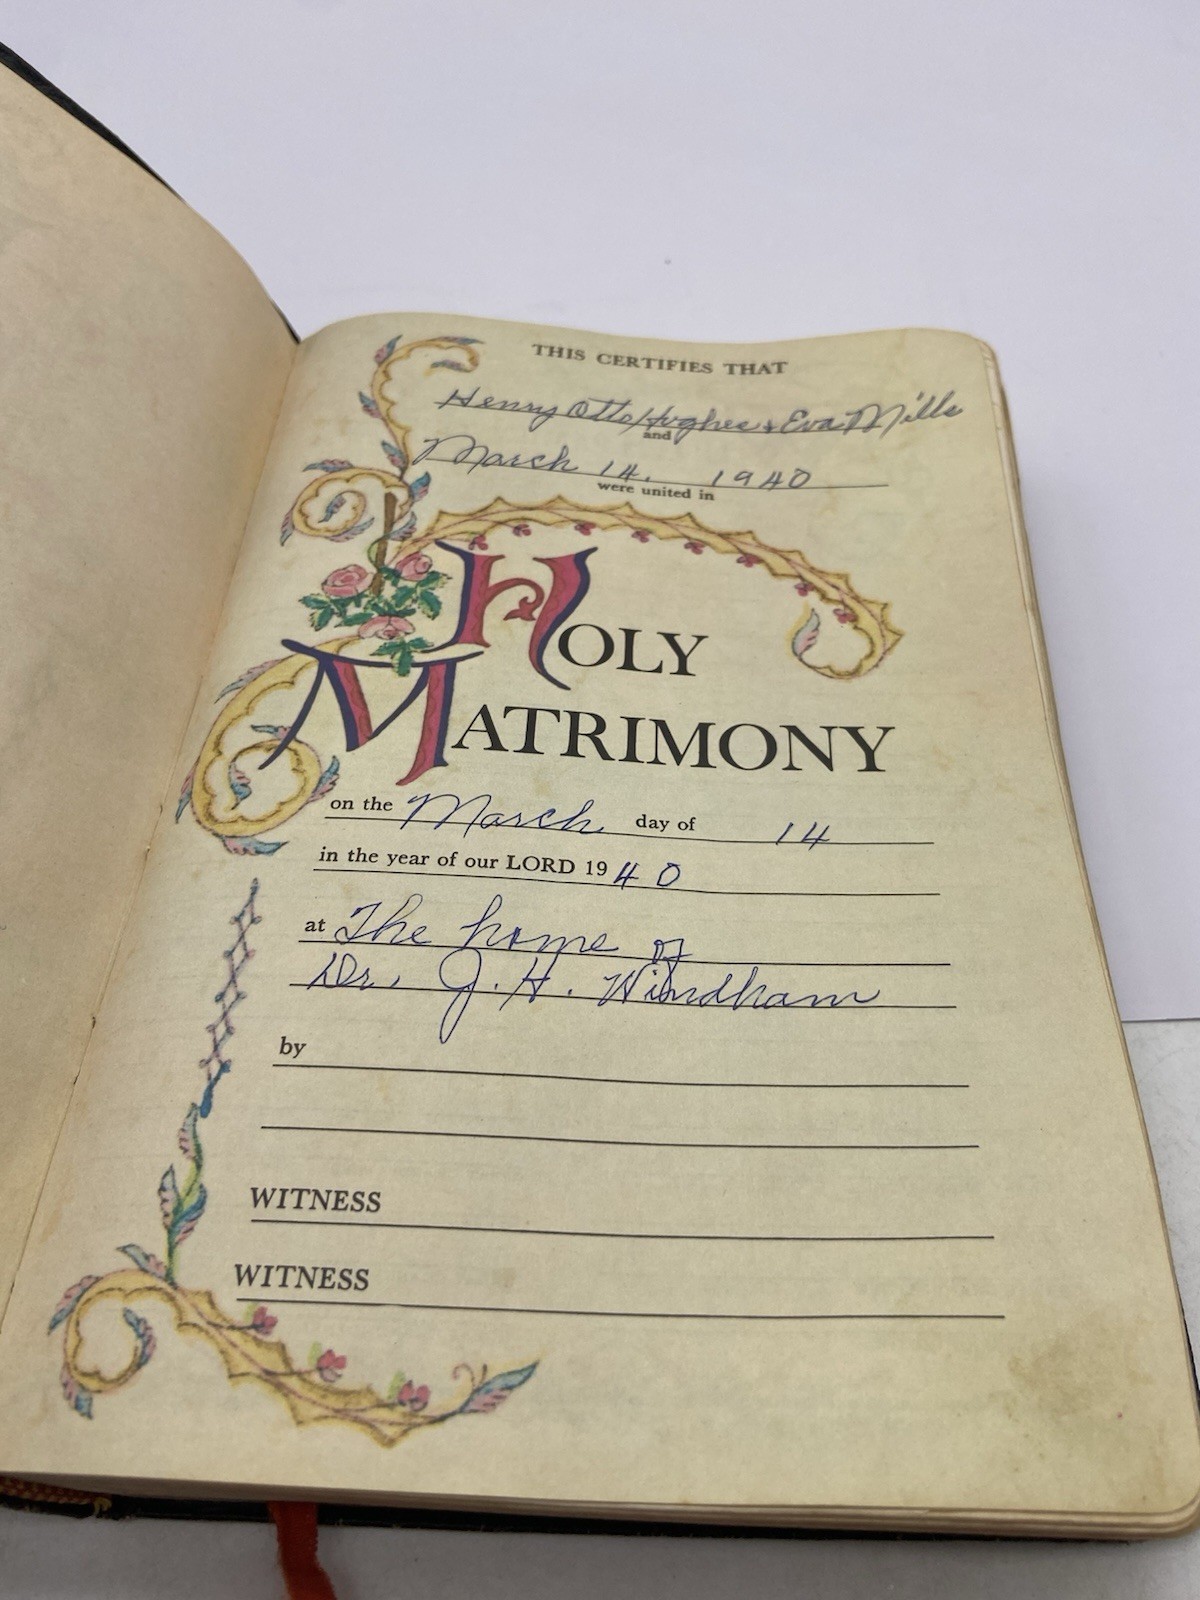 THIS CERTIFIES THAT
Henry Otto Hughes & Eva Mills
and
March 14, 1940
were united in
HOLY
MATRIMONY
on the March day of 14
in the year of our LORD 1940
at The home of
Dr. J. H. Windham
by
WITNESS
WITNESS